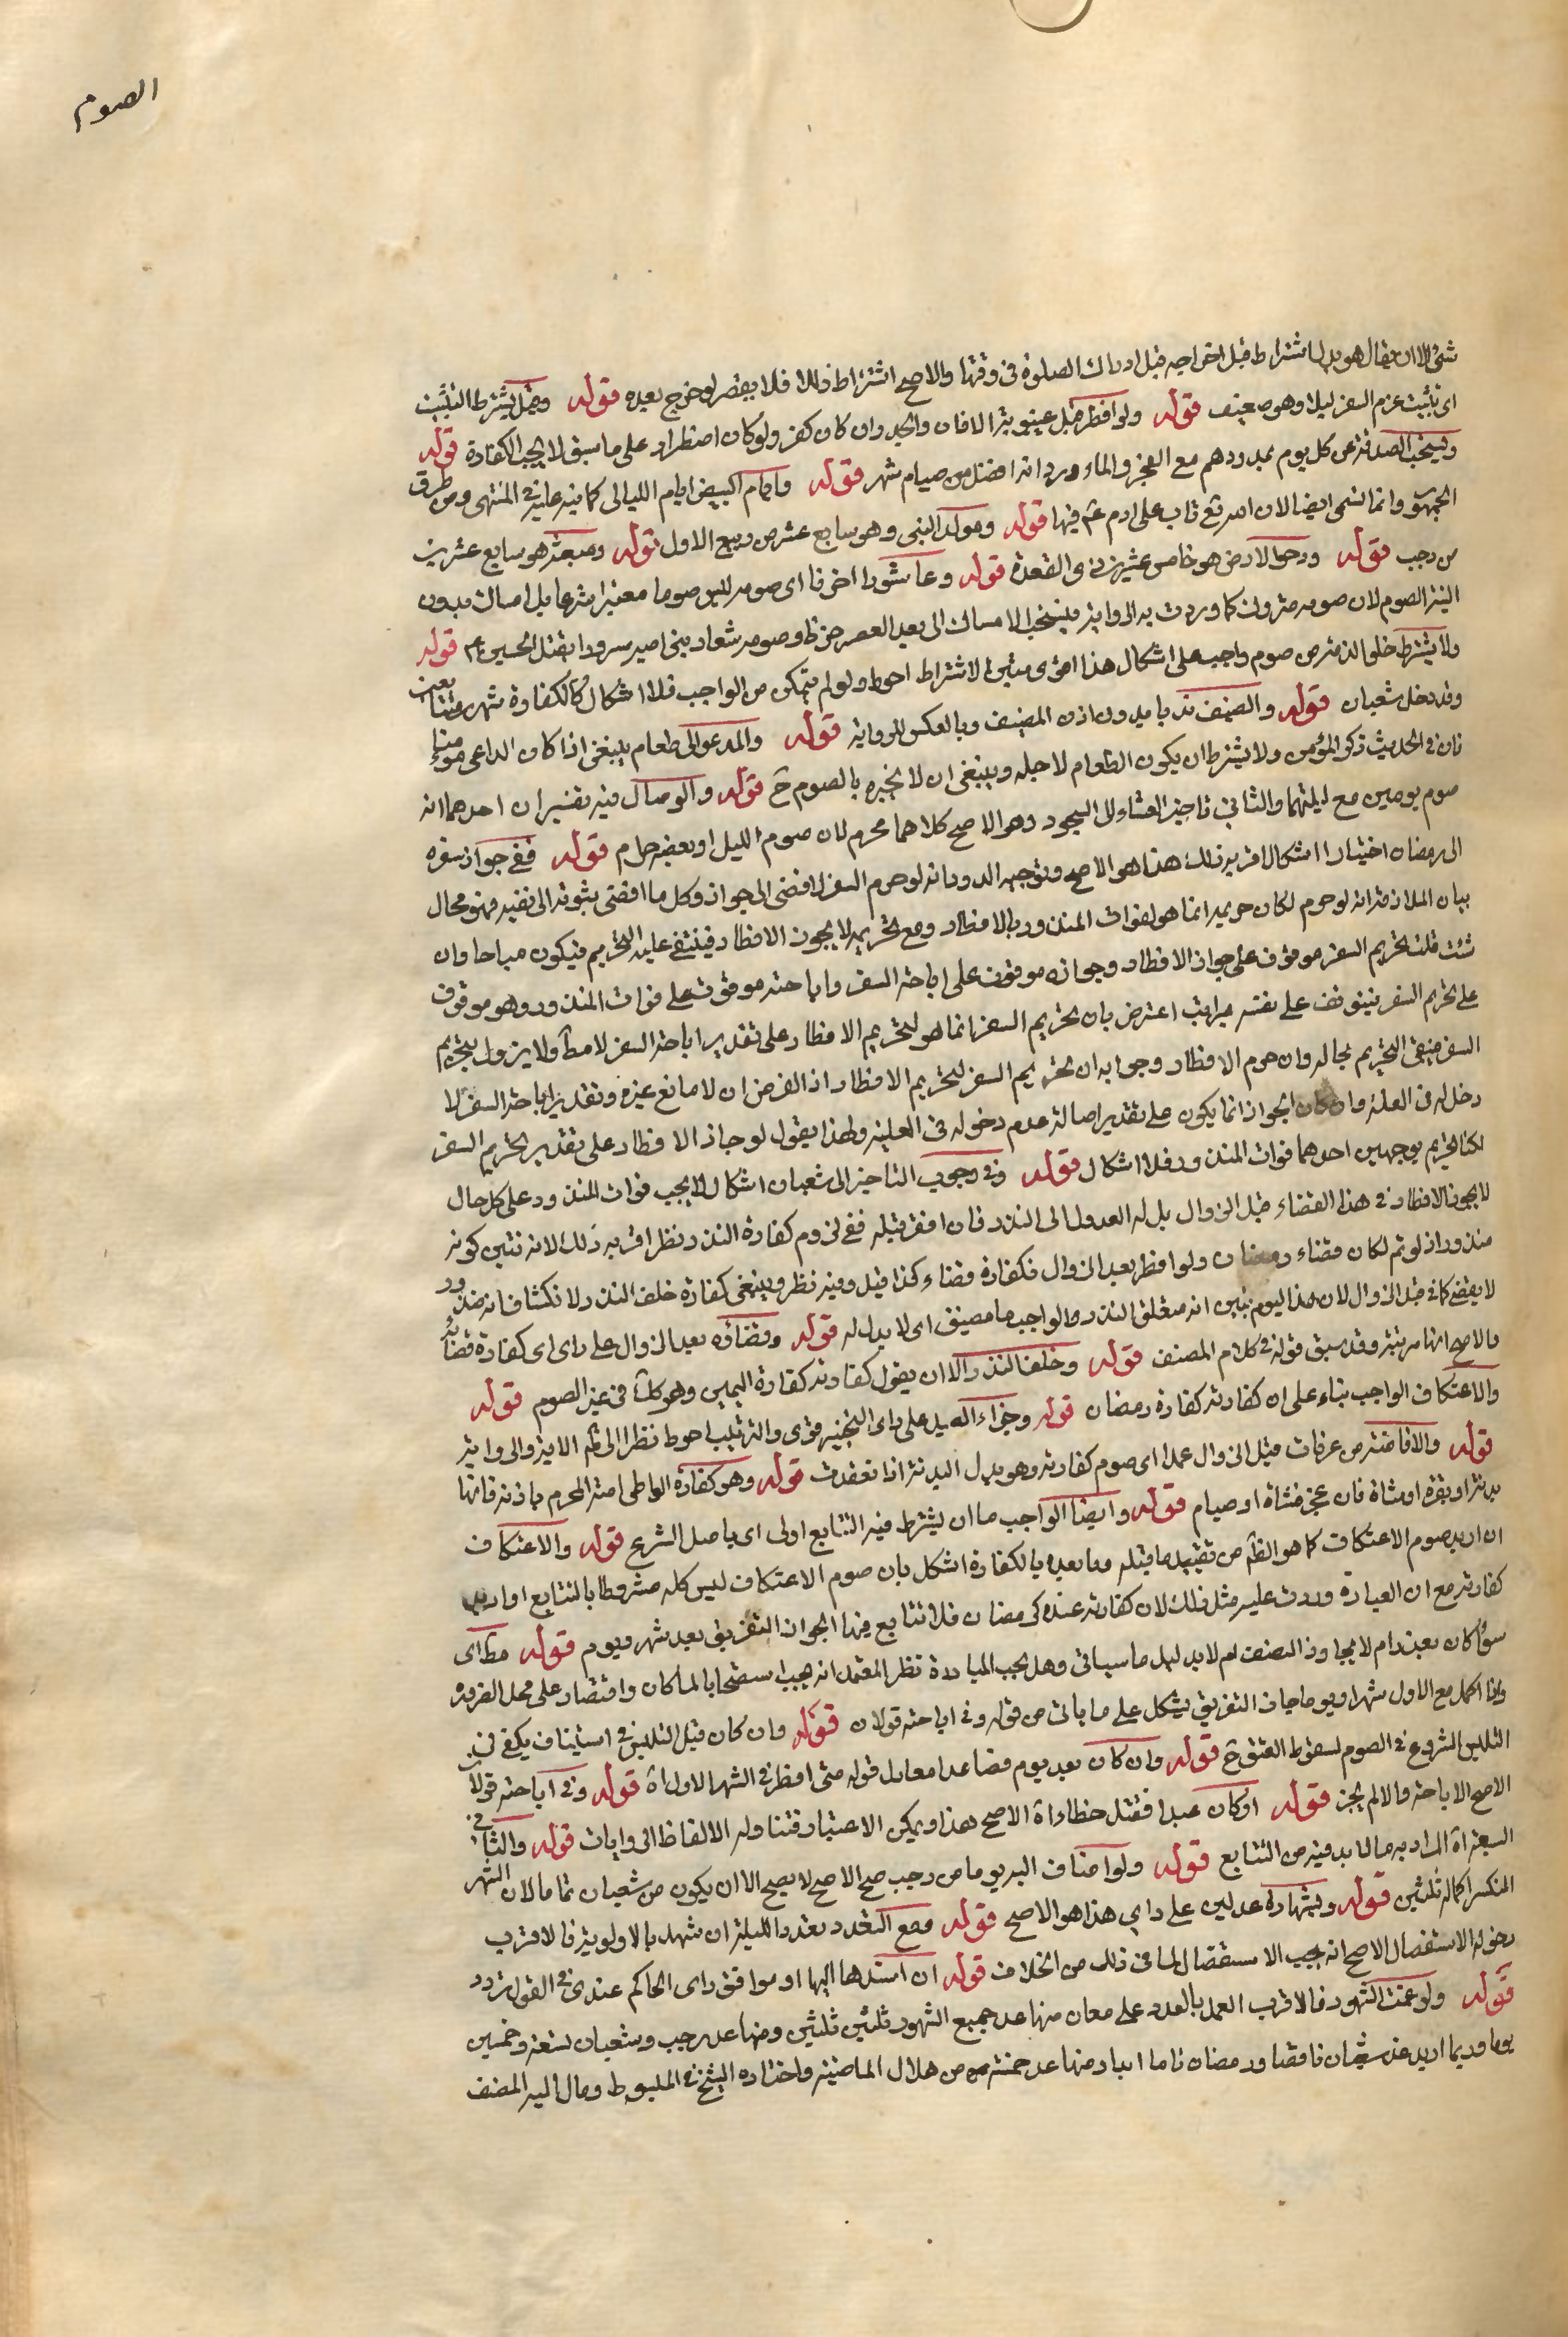 الصوم
شئ الا ان يقال هو بدل اشتراط قبل اخراجه قبل ادراك الصلوة فى وقتها والاصح اشتراط ذلك فلا يقصر لو خرج بعده قوله وقيل يشترط التبييت
اى تبييت عزم السفر ليلا وهو ضعيف قوله ولو افطر قبل غيبوبة الاذان والجدران كان كفر ولو كان اضطرار على ما سبق لا يجب الكفارة قوله
ويستحب الصدقة عن كل يوم بمد ودرهم مع العجز والماء ورد انه افضل من صيام شهر قوله وايام البيض ايام الليالى كما نبه عليه فى المنتهى ومن طرق
الجمهور وانما تسمى ايضا لان الله تع تاب على ادم ع فيها قوله ومولد النبى وهو سابع عشر من ربيع الاول قوله ومبعثه هو سابع عشرين
من رجب قوله ودحو الارض هو خامس عشرين ذى القعدة قوله وعاشورا اخرنا اى صومه ليس صوما معتبرا شرعا بل امساك بدون
النية الصوم لان صومه متروك كما وردت به الرواية فيستحب الامساك الى بعد العصر حزنا وصومه شعار بنى امية سرورا بقتل الحسين ع قوله
ولا يشترط خلو الذمة من صوم واجب على اشكال هذا اقوى مبنى الاشتراط احوط ولو لم يتمكن من الواجب فلا اشكال كالكفارة شهر متتابعين
وقد دخل شعبان قوله والضيف ندبا بدون اذن المضيف وبالعكس للرواية قوله والمدعو الى طعام ينبغى اذا كان الداعى مومنا
فان فى الحديث ذكر المؤمن ولا يشترط ان يكون الطعام لاجله وينبغى ان لا يخبره بالصوم ح قوله والوصال فيه تفسيران احدهما انه
صوم يومين مع ليلتهما والثانى تاخير العشاء الى السحور وهو الاصح كلاهما محرم لان صوم الليل او بعضه حرام قوله ففى جواز سفره
الى رمضان اختيارا اشكال اقربه ذلك هذا هو الاصح وتوجيه الدور انه لو حرم السفر لافضى الى جوازه وكل ما افضى ثبوته الى نفيه فهو محال
بيان الملازمة انه لو حرم لكان حريمه انما هو لفوات المنذور بالافطار ومع تحريمه لا يجوز الافطار فينتفى علية التحريم فيكون مباحا وان
شئت قلت تحريم السفر موقوف على جواز الافطار وجوازه موقوف على اباحة السفر واباحته موقوف على فوات المنذور وهو موقوف
على تحريم السفر فيتوقف على نفسه بمراتب اعترض بان تحريم السفر انما هو لتحريم الافطار على تقدير اباحة السفر لا مط ولا يزول بتحريم
السفر فيبقى التحريم بحاله وان حرم الافطار وجوابه ان تحريم السفر لتحريم الافطار اذ الفرض ان لا مانع غيره وتقدير اباحة السفر لا
دخل له فى العلة وان كان الجواز انما يكون على تقدير اصالة عدم دخوله فى العلية ولهذا يقول لو جاز الافطار على تقدير تحريم السفر
لكنا تحريم بوجهين احدهما فوات المنذور فلا اشكال قوله وفى وجوب التاخير الى شعبان اشكال لا يجب فوات المنذور على كل حال
لا يجوز الافطار فى هذا القضاء قبل الزوال بل له العدول الى النذر فان افطر قبله ففى لزوم كفارة النذر نظر اقربه ذلك لانه تبين كونه
منذورا اذ لو تم لكان قضاء رمضان ولو افطر بعد الزوال فكفارة قضاء كذا قيل وفيه نظر وينبغى كفارة خلف النذر لانكشاف انه منذور
لا يقضى كما فى قبل الزوال لان هذا اليوم تبين انه متعلق النذر والواجب ما مضيق اى لا بدل له قوله وقضاؤه بعد الزوال على راى اى كفارة قضائه
والاصح انها مرتبة وقد سبق قوله فى كلام المصنف قوله وخلف النذر الا ان يقول كفارته كفارة اليمين وهو كك فى غير الصوم قوله
والاعتكاف الواجب بناء على ان كفارته كفارة رمضان قوله وجزاء الصيد على راى التخيير قوى والترتيب احوط نظرا الى ظم الاية والرواية
قوله والافاضة من عرفات قبل الزوال عمدا اى صوم كفارته وهو بدل البدنة اذا تعذرت قوله وهو كفارة الواطى امته المحرم باذنه فانها
بدنة او بقرة او شاة فان عجز فشاة او صيام قوله وايضا الواجب ما ان يشترط فيه التتابع اولى اى باصل الشرع قوله والاعتكاف
ان اريد صوم الاعتكاف كما هو الظم من تقييد ما قبله وما بعده بالكفارة اشكل بان صوم الاعتكاف ليس كله مشروطا بالتتابع او اريد
كفارته مع ان العبارة وردت عليه مثل ذلك لان كفارته عنده كرمضان فلا تتابع فيها الجواز التفريق بعد شهر ويوم قوله مط اى
سواء كان بعذر ام لا يجاوز النصف ام لا بدليل ما سياتى وهل يجب المبادرة نظر المعتمد انه يجب استصحابا لما كان واقتصار على محل الضرورة
واذا اكمل مع الاول شهرا ويوما جاز التفريق يشكل على ما ياتى من قوله وفى اباحته قولان قوله وان كان قبل التلبس فى استيناف يكفى فى
التلبس الشروع فى الصوم لسقوط العتق ح قوله وان كان بعد يوم فصاعدا معادل قوله متى افطر فى الشهر الاول اه قوله وفى اباحته قولان
الاصح الاباحة والا لم يجز قوله او كان عبدا فقتل خطاء اه الاصح هذا ويمكن الاعتبار فتناوله الالفاظ الروايات قوله والثانى
السبعة اه المراد به ما لا بد فيه من التتابع قوله ولو اضاف اليه يوما من رجب صح الاصح لا يصح الا ان يكون من شعبان تماما لان الشهر
المنكسر اكماله ثلثين قوله وبشهادة عدلين على راى هذا هو الاصح قوله ومع التعدد بعد الليلة ان شهد بالاولوية فالاقرب
دخوله الاستفصال الاصح انه يجب الاستفصال لما فى ذلك من الخلاف قوله ان اسندها اليها او موافق راى الحاكم عندى فى القول تردد
قوله ولو غمت الشهور فالاقرب العمل بالعدد على معان منها عد جميع الشهور ثلثين ثلثين ومنها عد رجب وشعبان تسعة وخمسين
يوما وربما اريد عد شعبان ناقصا ورمضان تاما ابدا ومنها عد خمسة من هلال الماضية واختاره الشيخ فى المبسوط ومال اليه المصنف